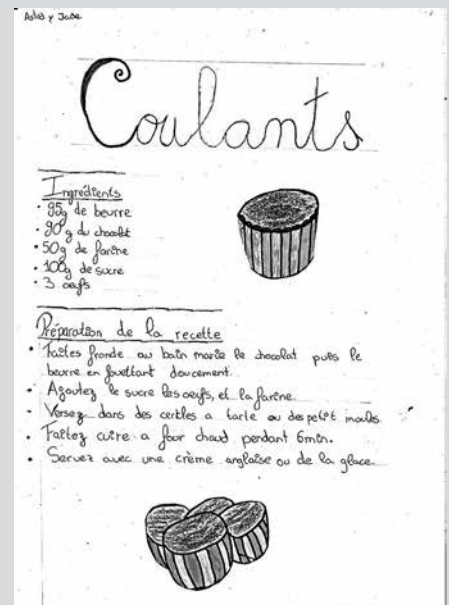 y Jade
Coulants
Ingrédients
• 95g de beurre
• 90g du chocolat
• 50g de farine
• 100g de sucre
• 3 oeufs
Préparation de la recette
• Faites fronde au bain marie le chocolat puis le
beurre en fouettant doucement.
• Agoutez le sucre les oeufs, et la farine.
• Versez dans des cercles a tarle ou des petit moules.
• Faitez cuire a four chaud pendant 6min.
• Servez avec une crème anglaise ou de la glace.